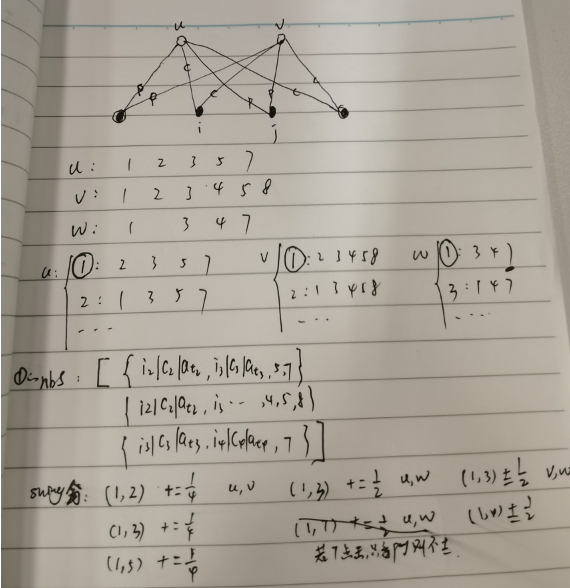 u v
P P C C P P C C
i j
u: 1 2 3 5 7
v: 1 2 3 4 5 8
w: 1 3 4 7
u: ①: 2 3 5 7 v ①: 2 3 4 5 8 w ①: 3 4 7
2: 1 3 5 7 2: 1 3 4 5 8 3: 1 4 7
... ... ...
①-nbs: [ { i2|C2|at2, i3|C3|at3, 5,7 }
{ i2|C2|at2, i3 ... ,4,5,8 }
{ i3|C3|at3, i4|C4|at4, 7 } ]
swing (1,2) += 1/4 u,v (1,3) += 1/2 u,w (1,3) ±= 1/2 v,w
(1,3) += 1/4 (1,7) += 1/2 u,w (1,4) ±= 1/2
(1,5) += 1/4 若7点击,